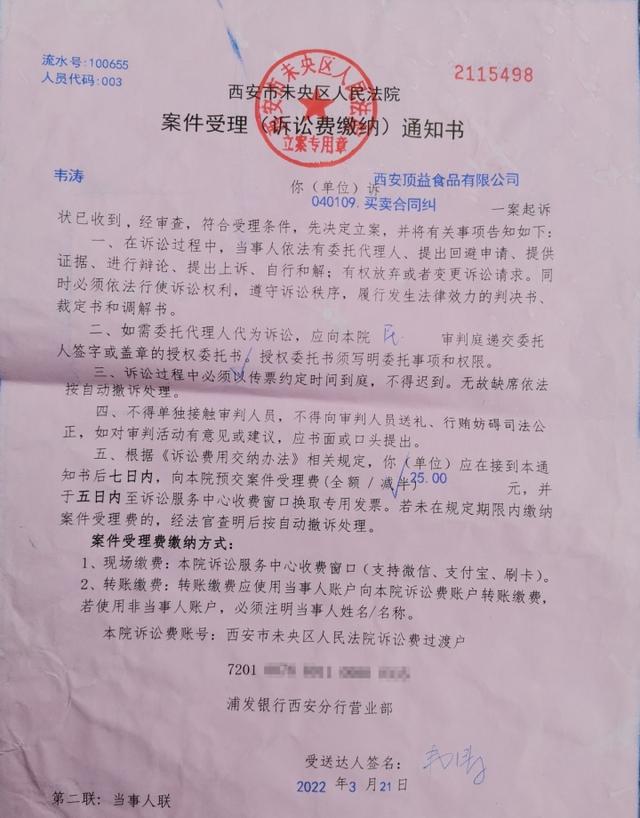 流水号:100655
人员代码:003
2115498
西安市未央区人民法院
案件受理（诉讼费缴纳）通知书
西安市未央区人民法院
立案专用章
韦涛
你（单位）诉 西安顶益食品有限公司
040109.买卖合同纠 一案起诉
状已收到，经审查，符合受理条件，先决定立案，并将有关事项告知如下：
一、在诉讼过程中，当事人依法有委托代理人、提出回避申请、提供
证据、进行辩论、提出上诉、自行和解；有权放弃或者变更诉讼请求。同
时必须依法行使诉讼权利，遵守诉讼秩序，履行发生法律效力的判决书、
裁定书和调解书。
二、如需委托代理人代为诉讼，应向本院 民 审判庭递交委托
人签字或盖章的授权委托书。授权委托书须写明委托事项和权限。
三、诉讼过程中必须以传票约定时间到庭，不得迟到。无故缺席依法
按自动撤诉处理。
四、不得单独接触审判人员，不得向审判人员送礼、行贿妨碍司法公
正，如对审判活动有意见或建议，应书面或口头提出。
五、根据《诉讼费用交纳办法》相关规定，你（单位）应在接到本通
知书后七日内，向本院预交案件受理费(全额 / 减半) 25.00 元，并
于五日内至诉讼服务中心收费窗口换取专用发票。若未在规定期限内缴纳
案件受理费的，经法官查明后按自动撤诉处理。
案件受理费缴纳方式：
1、现场缴费：本院诉讼服务中心收费窗口（支持微信、支付宝、刷卡）。
2、转账缴费：转账缴费应使用当事人账户向本院诉讼费账户转账缴费，
若使用非当事人账户，必须注明当事人姓名/名称。
本院诉讼费账号：西安市未央区人民法院诉讼费过渡户
7201
浦发银行西安分行营业部
受送达人签名： 韦涛
2022 年 3 月 21 日
第二联：当事人联